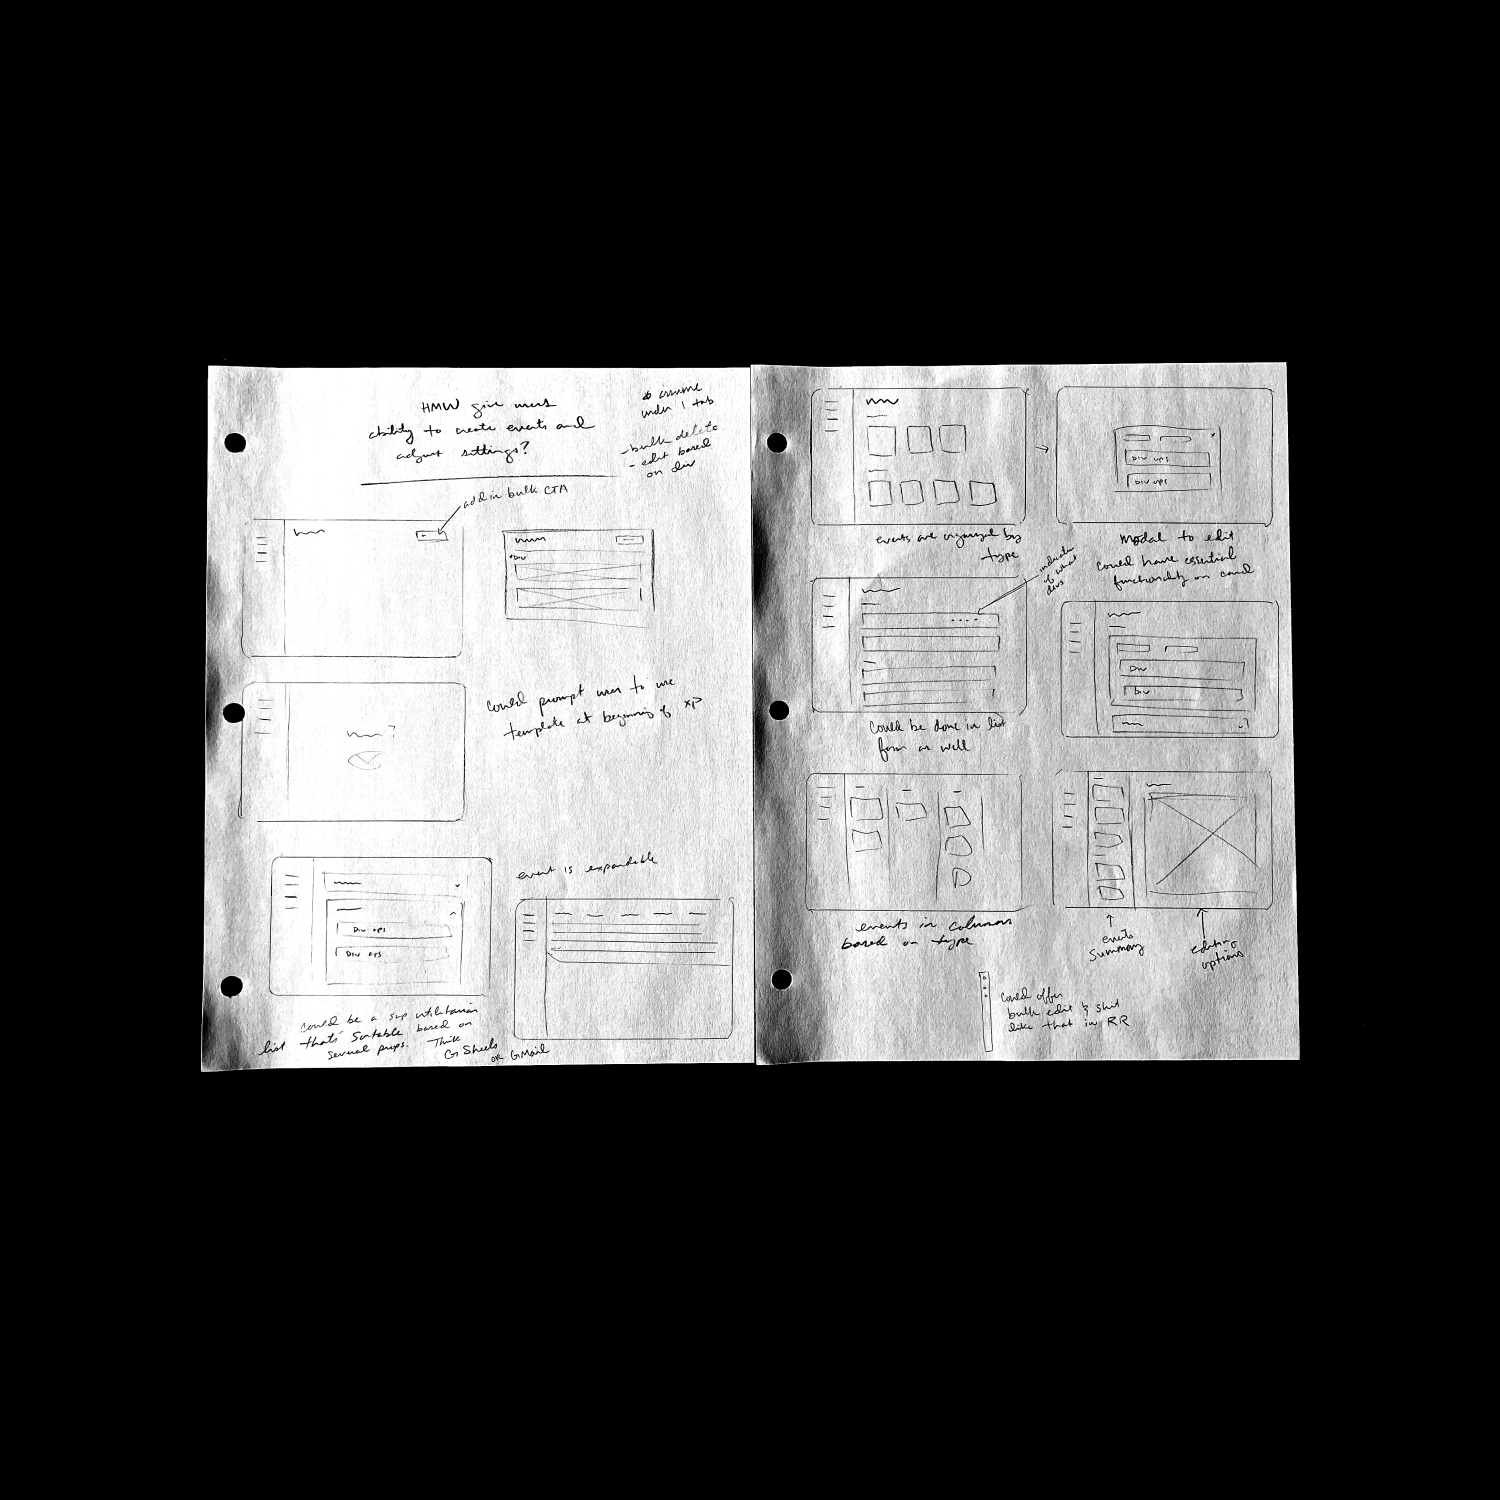 HMW give users
ability to create events and
adjust settings?
* assume
under 1 tab
- bulk delete
- edit based
on div
add in bulk CTA
Div
?
Could prompt user to use
template at beginning of xp
event is expandable
Div ops
Div ops
Could be a sup utilitarian
list that's sortable based on
several props. Think
G Sheets
or GMail
events are organized by
type
Div ops
Div ops
Modal to edit
could have essential
functionality on card
indicator
of what
divs
Could be done in list
form as well
Div
Div
events in columns
based on type
events
summary
editing
options
Could offer
bulk edit & shit
like that in RR